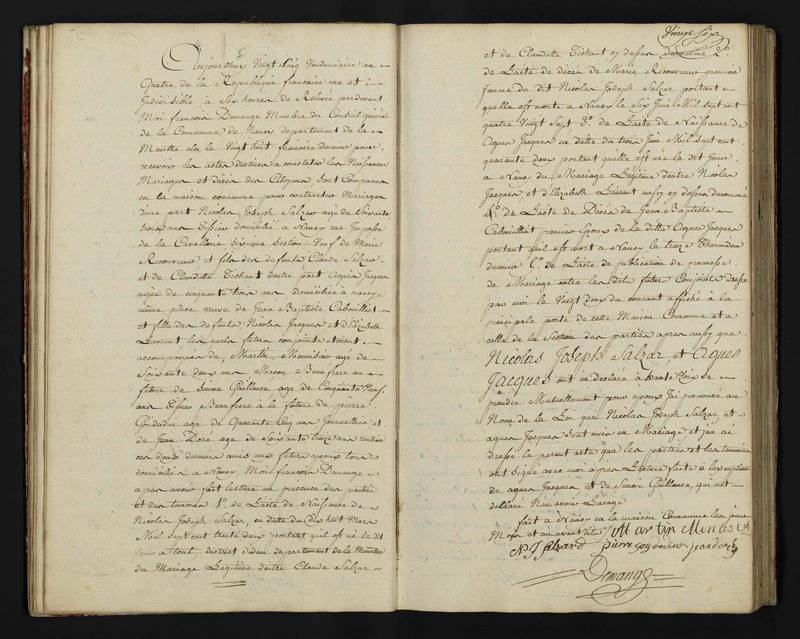 Aujourdhuy Vingt Cinq Vendemiaire an
Quatre de la Republique francoise une et
Indivisible à Six heures de Relevée pardevant
Moi francois Dumange Membre du Conseil general
de la Commune de Nancy departement de la
Meurthe elu le Vingt huit frimaire dernier pour
recevoir les actes destinés a constater les Naissances
Mariages et décès des Citoyens, sont Comparus
en la maison commune pour contracter Mariage
d'une part Nicolas Joseph Salzar agé de Soixante
trois ans domicilié a Nancy rue
de la Section Veuf de Marie
Recouvreur et fils des defunts Claude Salzar
et de Claudette d'autre part Agnès Jacques
agée de cinquante trois ans domiciliée a nancy
même place veuve de Jean Baptiste
et fille des defunts Nicolas Jacques et d'Elizabeth
Laurent les quels futurs conjoints etoient
accompagnés de Martin agé de
Soixante deux ans Macon Beaufrere au
future de Simon agé de Cinquante Neuf
ans Beaufrere à la future de pierre
agé de Quarante Cinq ans Journallier et
de Jean agé de Soixante treize ans
ces deux derniers amis aux futurs epoux tous
domiciliés a Nancy Moi francois Dumange
apres avoir fait lecture en presence des parties
et des temoins 1°. de L'acte de Naissance de
Nicolas Joseph Salzar, en datte du Dix huit Mars
Mil Sept cent trente deux portant quil est né le dit
jour a toul district dudeux departement de la Meurthe
du Mariage Légitime d'entre Claude Salzar
Vingt Six
et de Claudette cy dessus denommée 2°.
de L'acte de décès de Marie Recouvreur premiere
femme du dit Nicolas Joseph Salzar portant
quelle est morte a Nancy le Six Juin Mil Sept cent
quatre Vingt Sept 3°. de L'acte de Naissance de
Agnes Jacques en datte du trois Juin Mil Sept cent
quarante deux portant quelle est née le dit jour
a Nancy du Mariage Légitime d'entre Nicolas
Jacques et d'Elizabeth Laurent aussy cy dessus denommé
4°. de L'acte de Décès de Jean Baptiste
premier epoux de la ditte Agnes Jacques
portant quil est mort a Nancy le treize Thermidor
dernier 5°. de L'acte de publication de promesse
de Mariage entre les dits futurs Conjoints
par moi le Vingt deux du courant affiché à la
principale porte de cette Maison Commune et a
celle de la Section des parties apres aussy que
Nicolas Joseph Salzar et Agnes
Jacques ont eu declaré à haute Voix se
prendre Mutuellement pour epoux J'ai prononcé au
Nom de la Loi que Nicolas Joseph Salzar et
agnes Jacques Sont unis en Mariage et j'en ai
dressé le present acte que les parties et les temoins
ont signé avec moi apres Lecture faite à l'exception
de agnes Jacques et de Simon qui ont
declaré N'en avoir L'usage
fait à Nancy en la maison Commune les jour
Mois et an avant dits Martin
N J Salzard pierre
Dumange